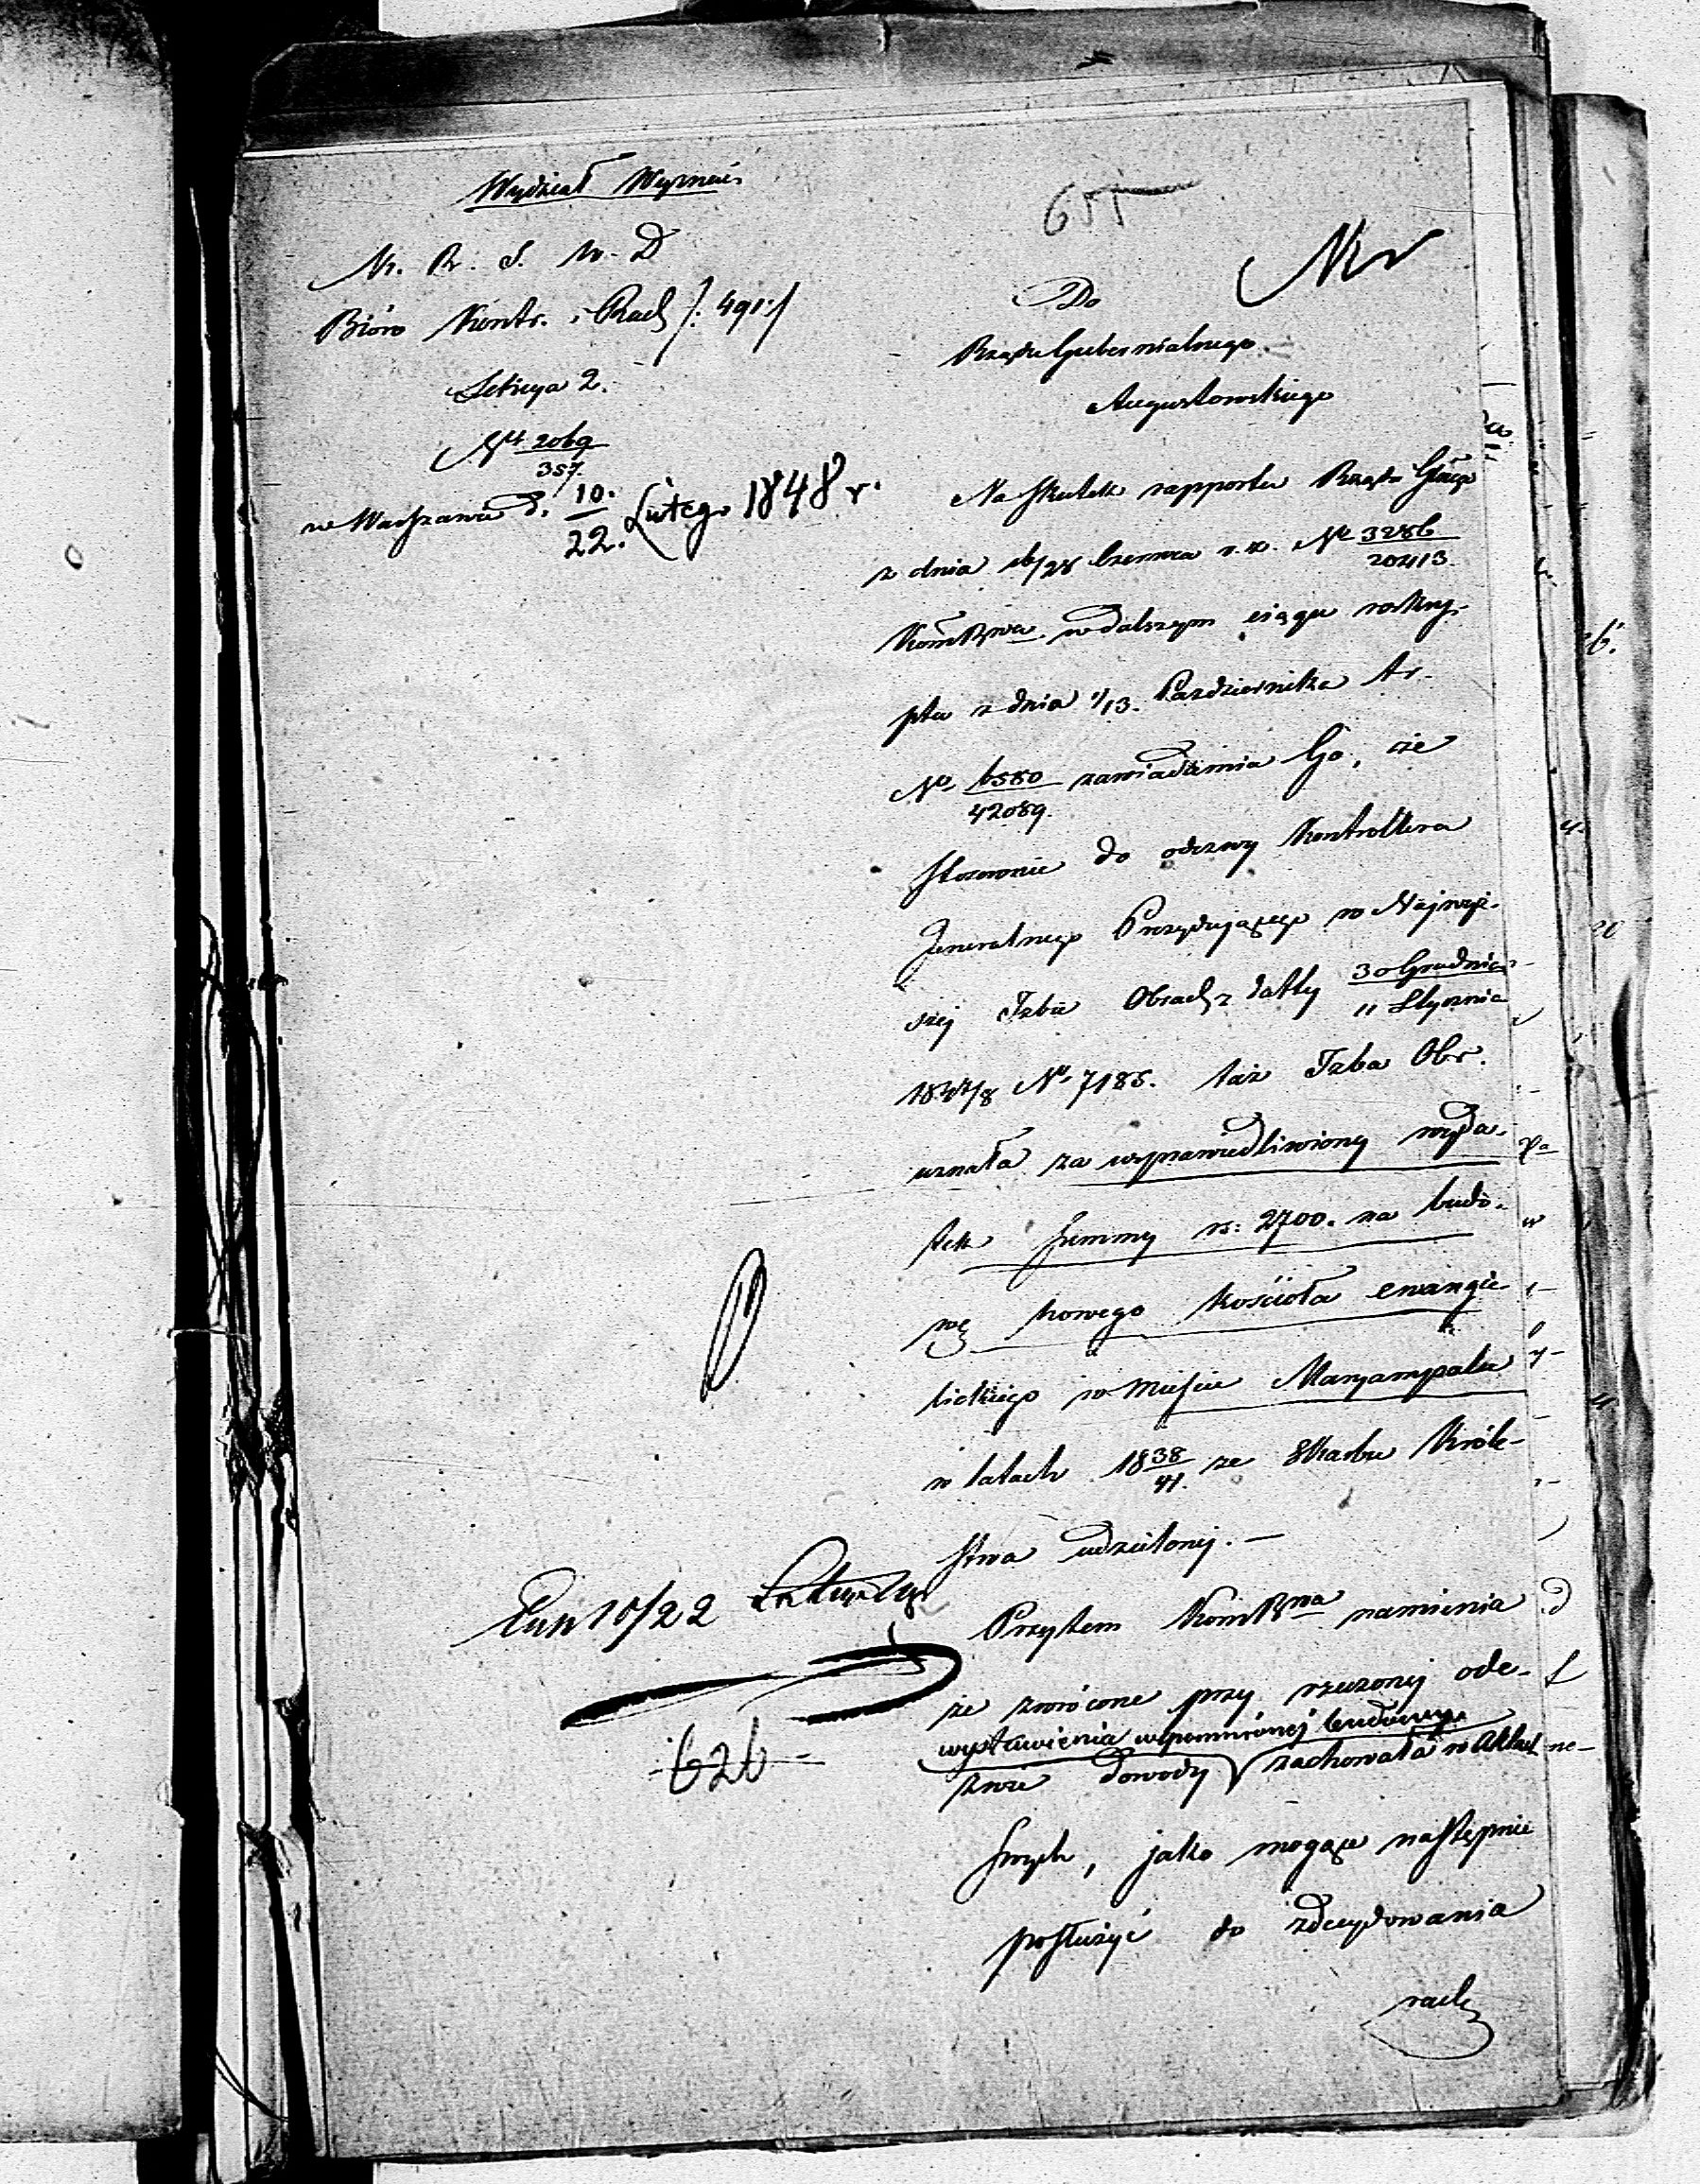 Wydział Wyznań
655
K. R. S. W. D
Bióro Kontr. i Rach /: 491 :/
Sekcya 2.
Nº 2069/357
w Warszawie d. 10/22. Lutego 1848 r.
Do
Rządu Gubernialnego
Augustowskiego
Na skutek rapportu Rządu Gubgo
z dnia 16/28 Czerwca r. z. Nº 3286/20413
KomRwa w dalszym ciągu reskry-
ptu z dnia 1/13. Października t. r.
Nº 6580/42089. zawiadamia Go, że
stosownie do odezwy Kontrollera
Jeneralnego Prezydującego w Najwyż-
szej Izbie Obrach z datty 30 Grudnia/11 Stycznia
1847/8 Nº 7185. taż Izba Obr.
uznała za usprawiedliwiony wyda-
tek summy rs: 2700. na budo-
wę nowego kościoła ewangie-
lickiego w mieście Maryampolu
w latach 1838/41. ze Skarbu Króle-
stwa udzielonej. —
Przytem KomRwa namienia
że zwrócone przy rzeczonej ode-
wystawienia wspomnionej budowy
zwie dowody zachowała w Aktach
swych, jako mogące następnie
posłużyć do zdecydowania
rach
10/22
626